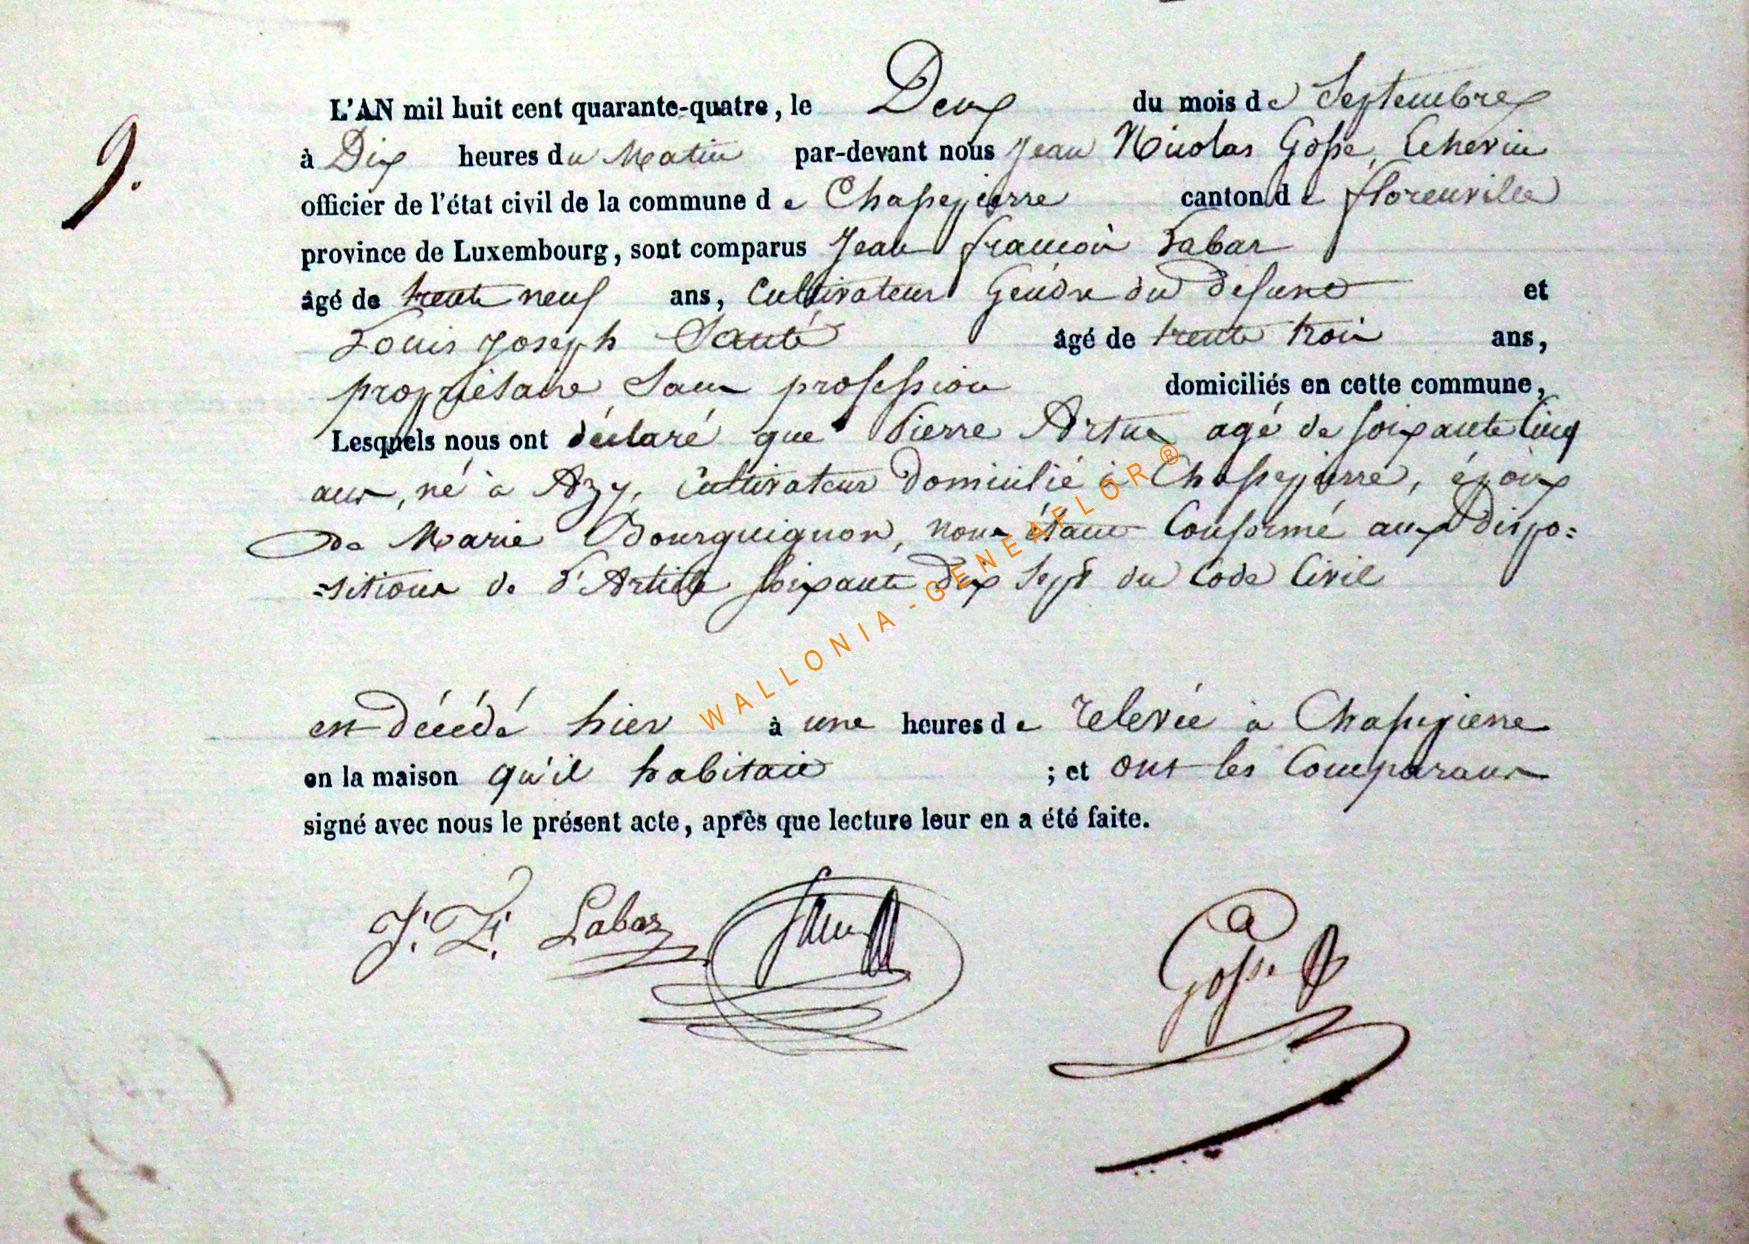 L'AN mil huit cent quarante-quatre, le Deux du mois de Septembre
9.
à Dix heures du Matin par-devant nous Jean Nicolas Gosse, Echevin
officier de l'état civil de la commune de Chassepierre canton de florenville
province de Luxembourg, sont comparus Jean françois Labar
âgé de trente neuf ans, Cultivateur Gendre du defunt et
Louis Joseph Santé âgé de trente trois ans,
propriétaire Sans profession domiciliés en cette commune,
Lesquels nous ont déclaré que Pierre Artus agé de soixante Cinq
ans, né à Azy, Cultivateur Domicilié à Chassepierre, époux
de Marie Bourguignon, nous étant Conformé aux dispo=
=sitions de L'Article soixante Dix Sept du Code Civil
WALLONIA-GENEAFLOR®
est décédé hier à une heures de relevée à Chassepierre
en la maison qu'il habitait ; et ont les Comparans
signé avec nous le présent acte, après que lecture leur en a été faite.
J. F. Labar
Gosse